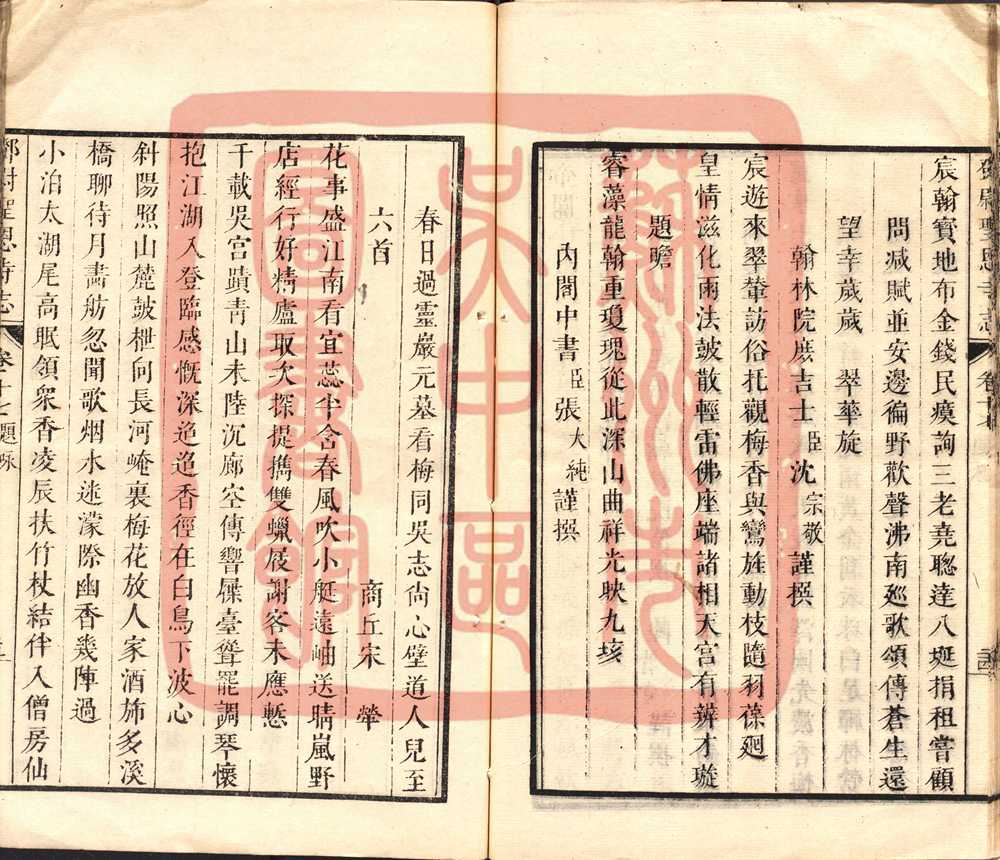 鄧尉聖恩寺志
卷十七
宸翰寶地布金錢民瘼詢三老堯聰達八埏捐租嘗顧
問减賦並安邊徧野歡聲沸南廵歌頌傳蒼生還
望幸歲歲 翠華旋
翰林院庶吉士臣沈宗敬謹撰
宸遊來翠輦訪俗托觀梅香與鸞旌動枝隨羽葆廻
皇情滋化雨法鼓散輕雷佛座端諸相天宮有辨才璇
題瞻
睿藻龍翰重瓊瑰從此深山曲祥光映九垓
內閣中書臣張大純謹撰
春日過靈巖元墓看梅同吳志尙心壁道人兒至
六首
商丘宋犖
花事盛江南看宜蕊半含春風吹小艇遠岫送晴嵐野
店經行好精廬取次探提攜雙蠟屐謝客未應慙
千載吳宮蹟靑山未陸沉廊空傳響屧臺聳罷調琴懷
抱江湖入登臨感慨深迨迨香徑在白鳥下波心
斜陽照山麓鼓枻向長河崦裏梅花放人家酒斾多溪
橋聊待月畵舫忽聞歌烟水迷濛際幽香幾陣過
小泊太湖尾高眠領衆香凌辰扶竹杖結伴入僧房仙
鄧尉聖恩寺志
卷十七題咏
蘇州市吳中區圖書館